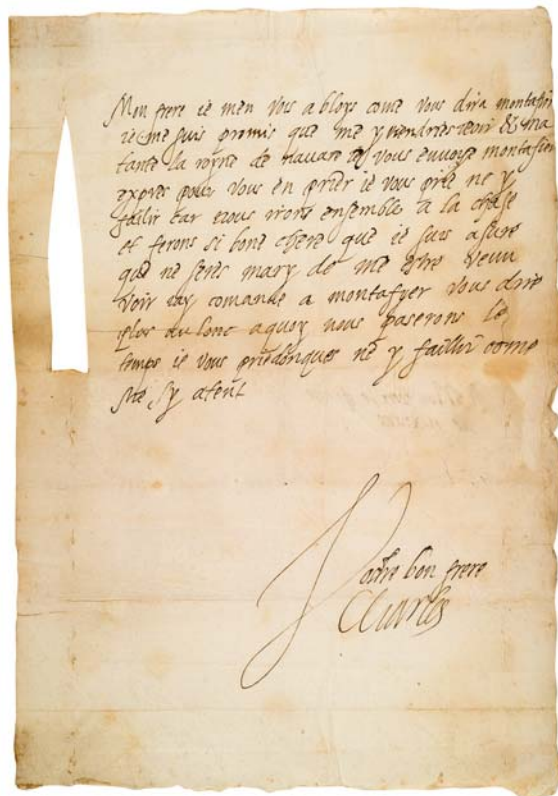 Mon frere ie men vois a bloys come vous dira montafier
ie me suis promis que me y viendries veoir et ma
tante la royne de navare ie vous envoye montafier
expres pour vous en prier ie vous prie ne y
faillir car nous irons ensemble a la chase
et ferons si bone chere que ie suis asure
que ne serés mary de me estre venu
voir iay comande a montafyer vous dire
plus au lonc aquoy nous paserons le
temps ie vous priedonques ne y faillir come
sy atent
Vostre bon frere
Charles